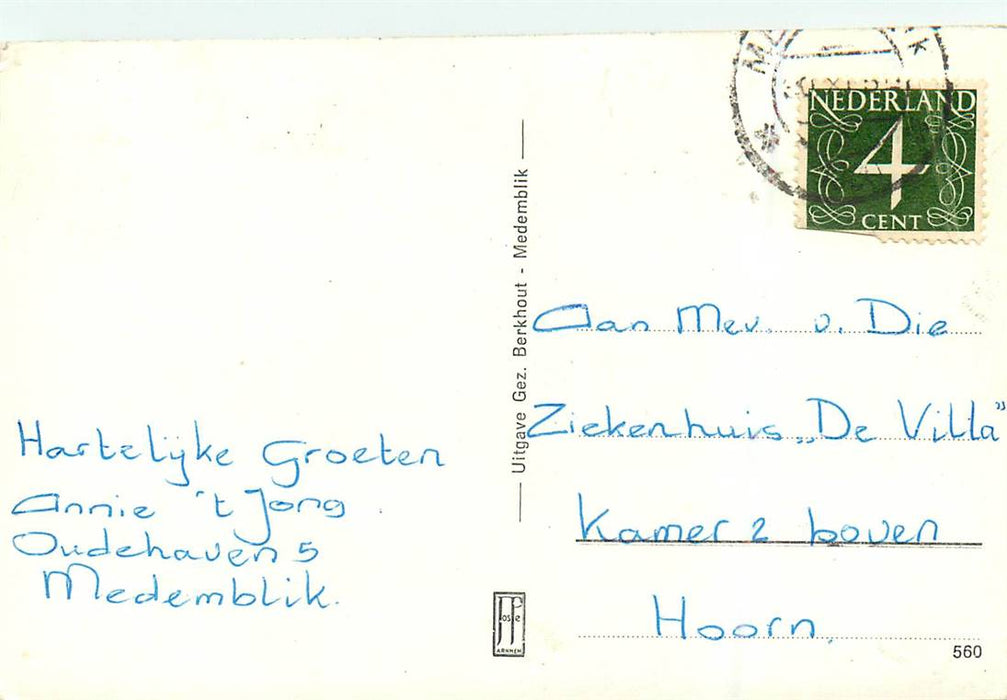 NEDERLAND
4
CENT
Uitgave Gez. Berkhout - Medemblik
Aan Mev. v. Die
Ziekenhuis „De Villa"
Kamer 2 boven
Hoorn.
Hartelijke Groeten
Annie 't Jong
Oudehaven 5
Medemblik.
JosPe
ARNHEM
560